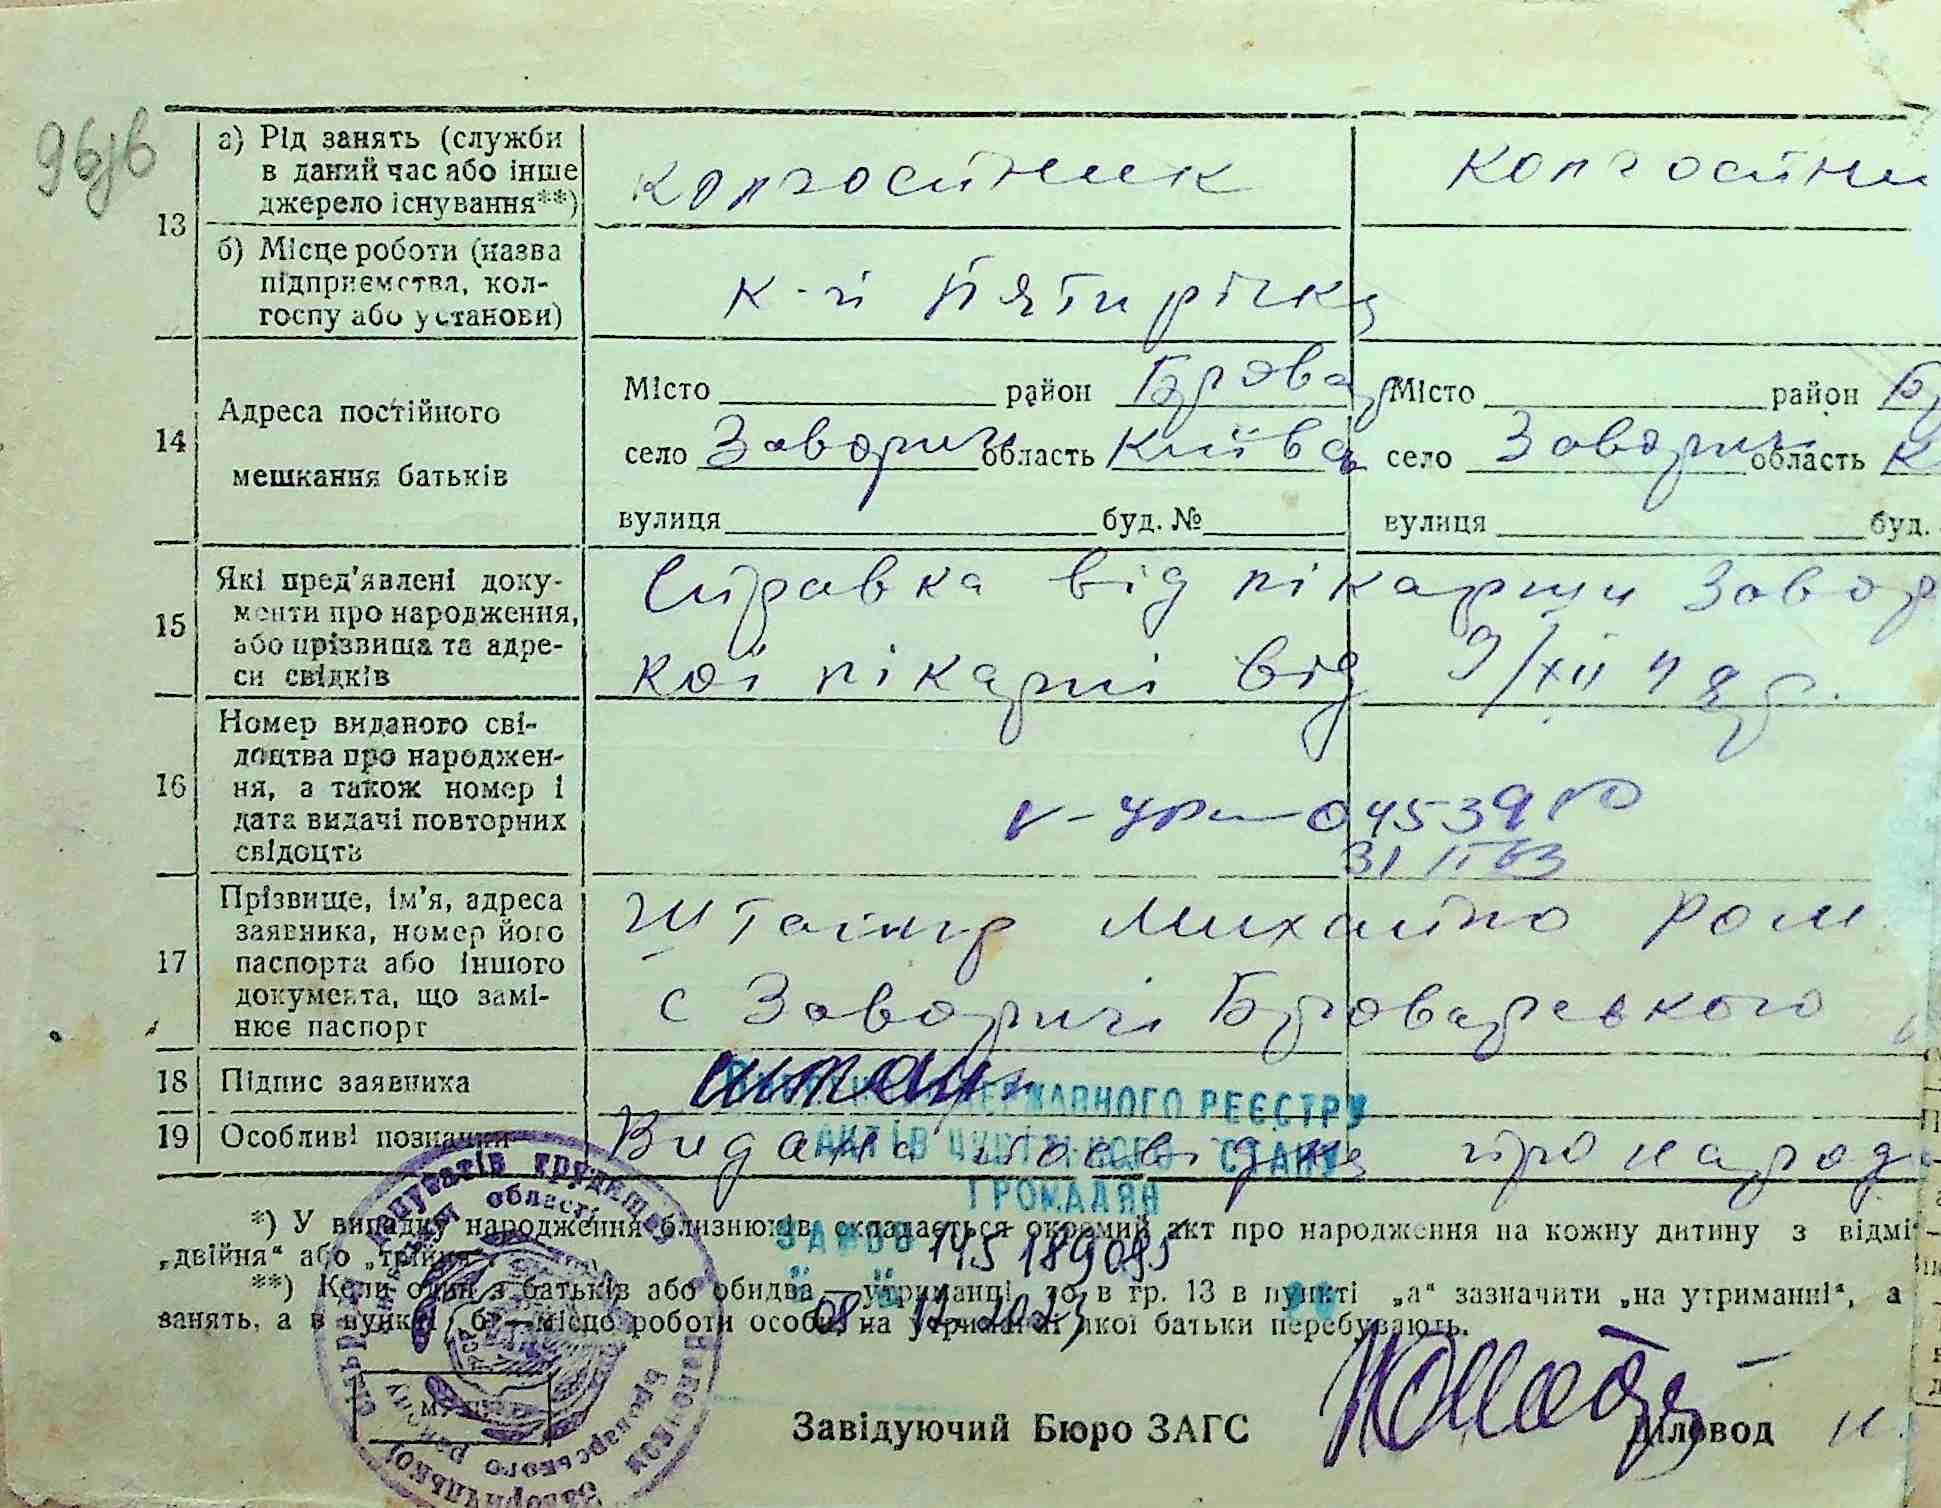 13
а) Рід занять (служби
в даний час або інше
джерело існування**)
колгоспник
колгоспни
б) Місце роботи (назва
підприємства, кол-
госпу або установи)
к-п Пятирічка
14
Адреса постійного
мешкання батьків
Місто район Бровар
село Заворичі область Київсь
вулиця буд. №
Місто район Бр
село Заворичі область К
вулиця буд.
15
Які пред'явлені доку-
менти про народження,
або прізвища та адре-
си свідків
Справка від лікарши Завор
кої лікарні від 9/XII 48 р.
16
Номер виданого сві-
доцтва про народжен-
ня, а також номер і
дата видачі повторних
свідоцтв
31 63
17
Прізвище, ім'я, адреса
заявника, номер його
паспорта або іншого
документа, що замі-
нює паспорт
Михайло Ром
с Заворичі Броварського
18 Підпис заявника
19 Особливі позначки
Видана довідка про народ
ДЕРЖАВНОГО РЕЄСТРУ
АКТІВ ЦИВІЛЬНОГО СТАНУ
ГРОМАДЯН
*) У випадку народження близнюків складається окремий акт про народження на кожну дитину з відмі
„двійня“ або „трійня“.
**) Коли один з батьків або обидва—утриманці, то в гр. 13 в пункті „а“ зазначити „на утриманні“, а
занять, а в пункті „б“—місце роботи особи, на утриманні якої батьки перебувають.
08 12 2023
М. П.
Завідуючий Бюро ЗАГС
Діловод